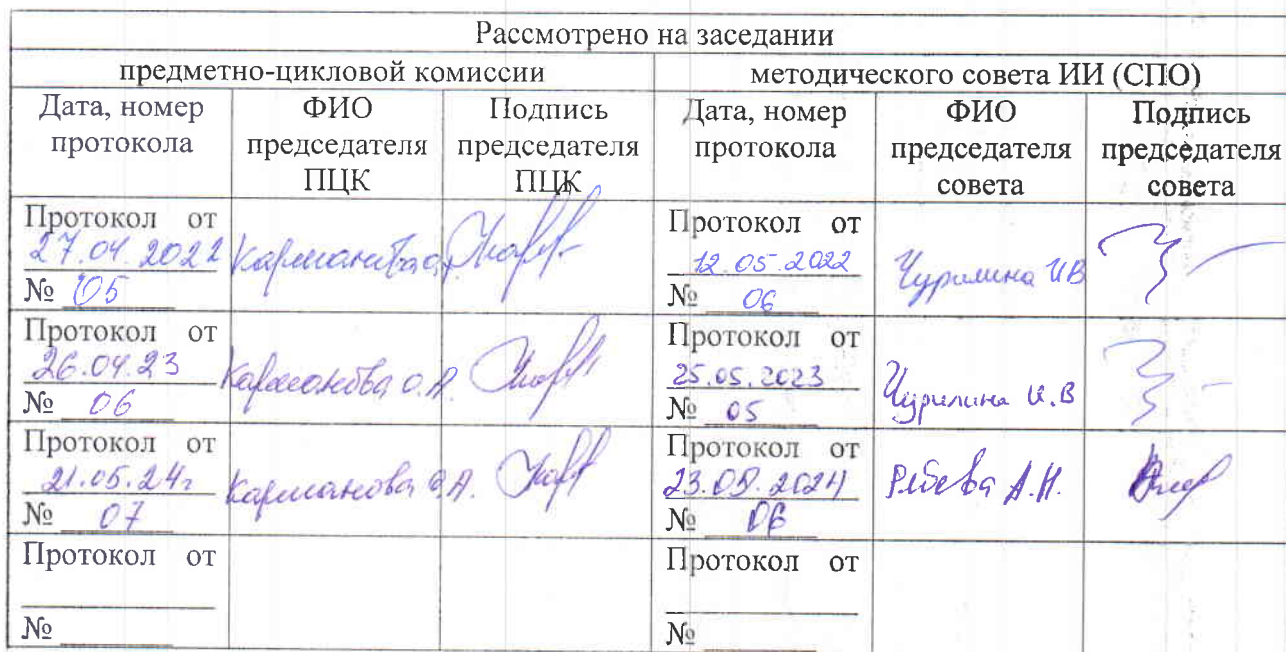 Рассмотрено на заседании
предметно-цикловой комиссии методического совета ИИ (СПО)
Дата, номер протокола ФИО председателя ПЦК Подпись председателя ПЦК Дата, номер протокола ФИО председателя совета Подпись председателя совета
Протокол от 27.04.2022 № 05 Карманова Протокол от 12.05.2022 № 06 Чурилина ИВ
Протокол от 26.04.23 № 06 Карманова О.А. Протокол от 25.05.2023 № 05 Чурилина И.В
Протокол от 21.05.24г № 07 Карманова О.А. Протокол от 23.05.2024 № 06 А.Н.
Протокол от № Протокол от №